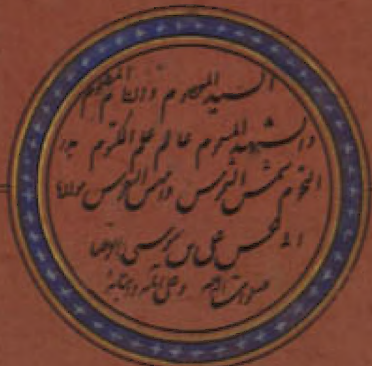 السيد المعصوم والامام المظلوم
والشهيد المسموم عالم علم المكتوم بدر
النجوم شمس الشموس وانيس النفوس مولانا
ابى الحسن على بن موسى الرضا
صلوات الله وعلى